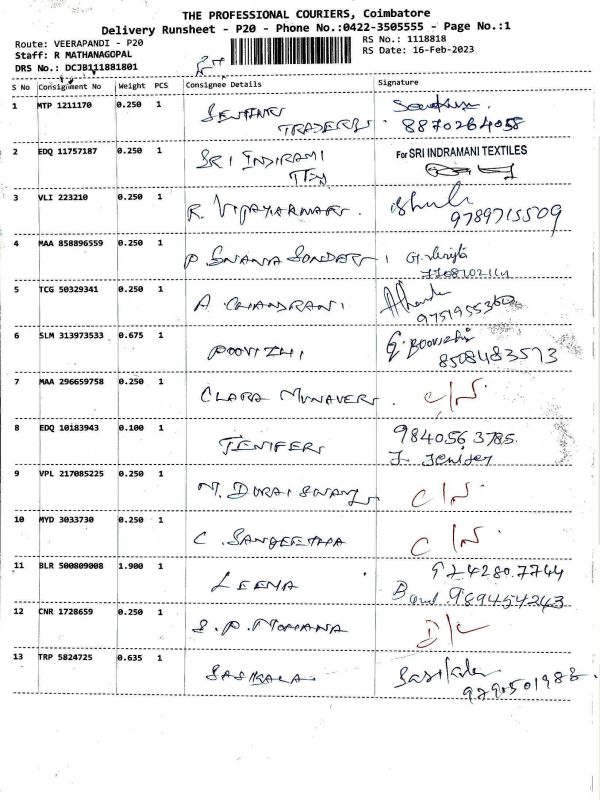 THE PROFESSIONAL COURIERS, Coimbatore
Delivery Runsheet - P20 - Phone No.:0422-3505555 - Page No.:1
Route: VEERAPANDI - P20
RS No.: 1118818
Staff: R MATHANAGOPAL
RS Date: 16-Feb-2023
DRS No.: DCJB111881801
S No Consignment No Weight PCS Consignee Details Signature
1 MTP 1211170 0.250 1
TRADERS 8870264058
2 EDQ 11757187 0.250 1 SRI INDIRAMI For SRI INDRAMANI TEXTILES
3 VLI 223210 0.250 1 R. VIJAYAKUMAR
9789715509
4 MAA 858896559 0.250 1 P
5 TCG 50329341 0.250 1 A. CHANDRANI
9751955360
6 SLM 313973533 0.675 1 POOVIZHI G. Boovizhi
8508483573
7 MAA 296659758 0.250 1 CLARA MUNAVER C/N
8 EDQ 10183943 0.100 1 JENIFER 9840563785
J. Jenifer
9 VPL 217085225 0.250 1 N. DURAISWAMY C/N
10 MYD 3033730 0.250 1 C. SANGEETHA C/N
11 BLR 500809008 1.900 1 LEENA 9242807744
989454243
12 CNR 1728659 0.250 1 S.P. MOHANA D/L
13 TRP 5824725 0.635 1 SASIKALA Sasikala
9290501988